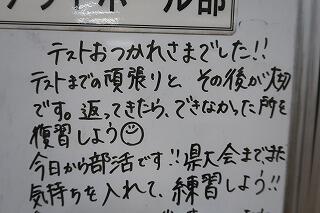 ボール部
テストおつかれさまでした!!
テストまでの頑張りと その後が大切
です。返ってきたら、できなかった所を
復習しよう☺
今日から部活です!!県大会までまた
気持ちを入れて、練習しよう!!